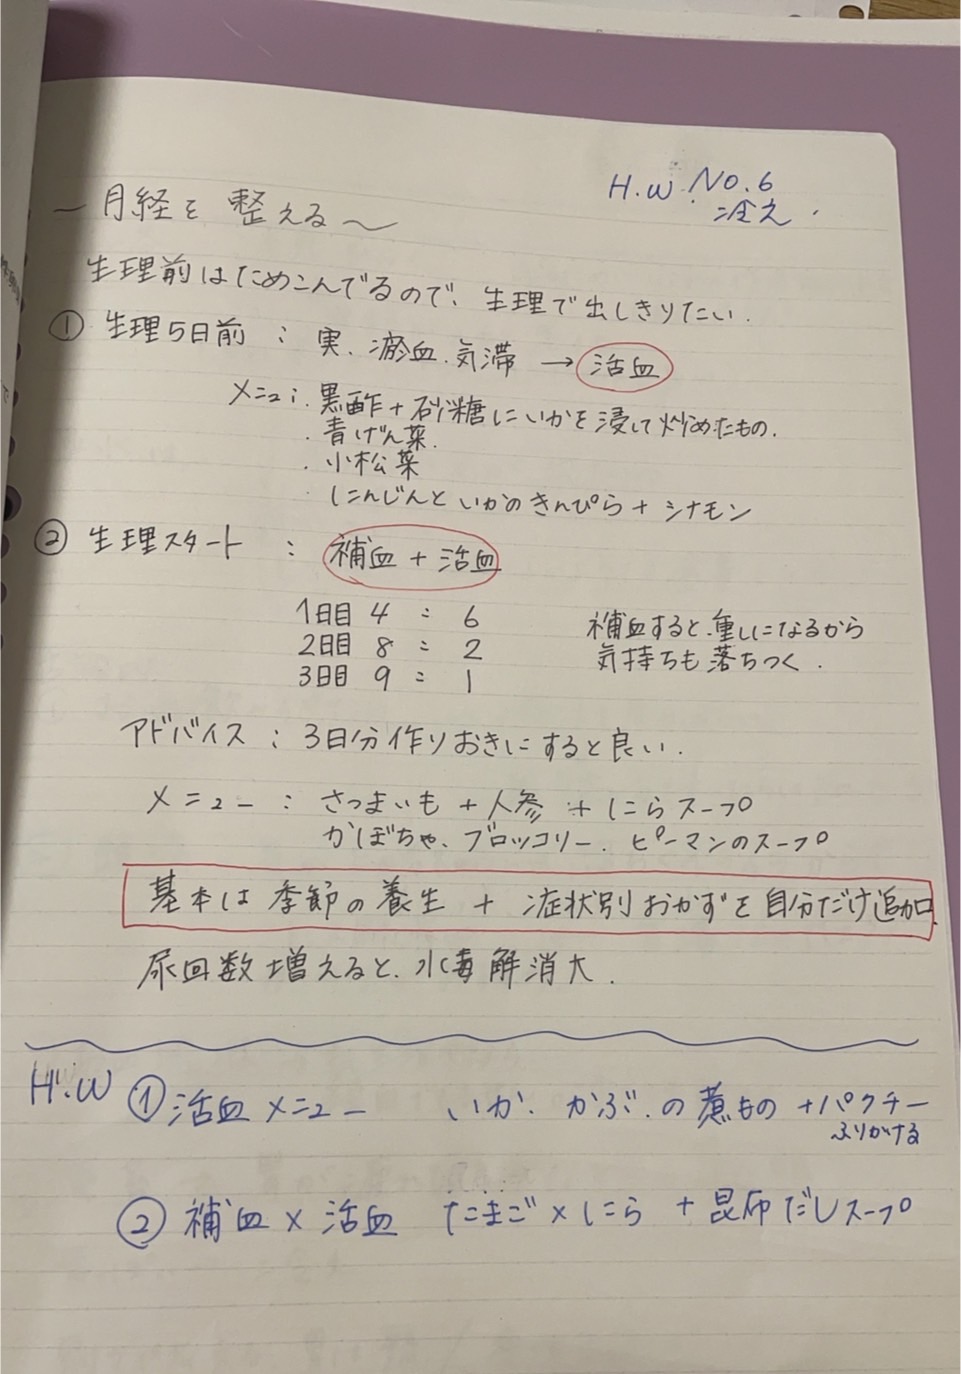 H.W. No.6
冷え.
〜月経を整える〜
生理前はためこんでるので、生理で出しきりたい.
① 生理5日前 : 実. 瘀血. 気滞 → 活血
メニュ: . 黒酢+砂糖にいかを浸して炒めたもの.
. 青げん菜.
. 小松菜
. にんじんといかのきんぴら+シナモン
② 生理スタート : 補血+活血
1日目 4 : 6
2日目 8 : 2
3日目 9 : 1
補血すると、重しになるから
気持ちも落ちつく.
アドバイス : 3日分作りおきにすると良い.
メニュー : さつまいも+人参+にらスープ
かぼちゃ、ブロッコリー、ピーマンのスープ
基本は季節の養生 + 症状別おかずを自分だけ追加.
尿回数増えると、水毒解消大.
H.W ①活血メニュー いか、かぶ、の煮もの+パクチー
ふりかける
② 補血×活血 たまご×にら+昆布だしスープ